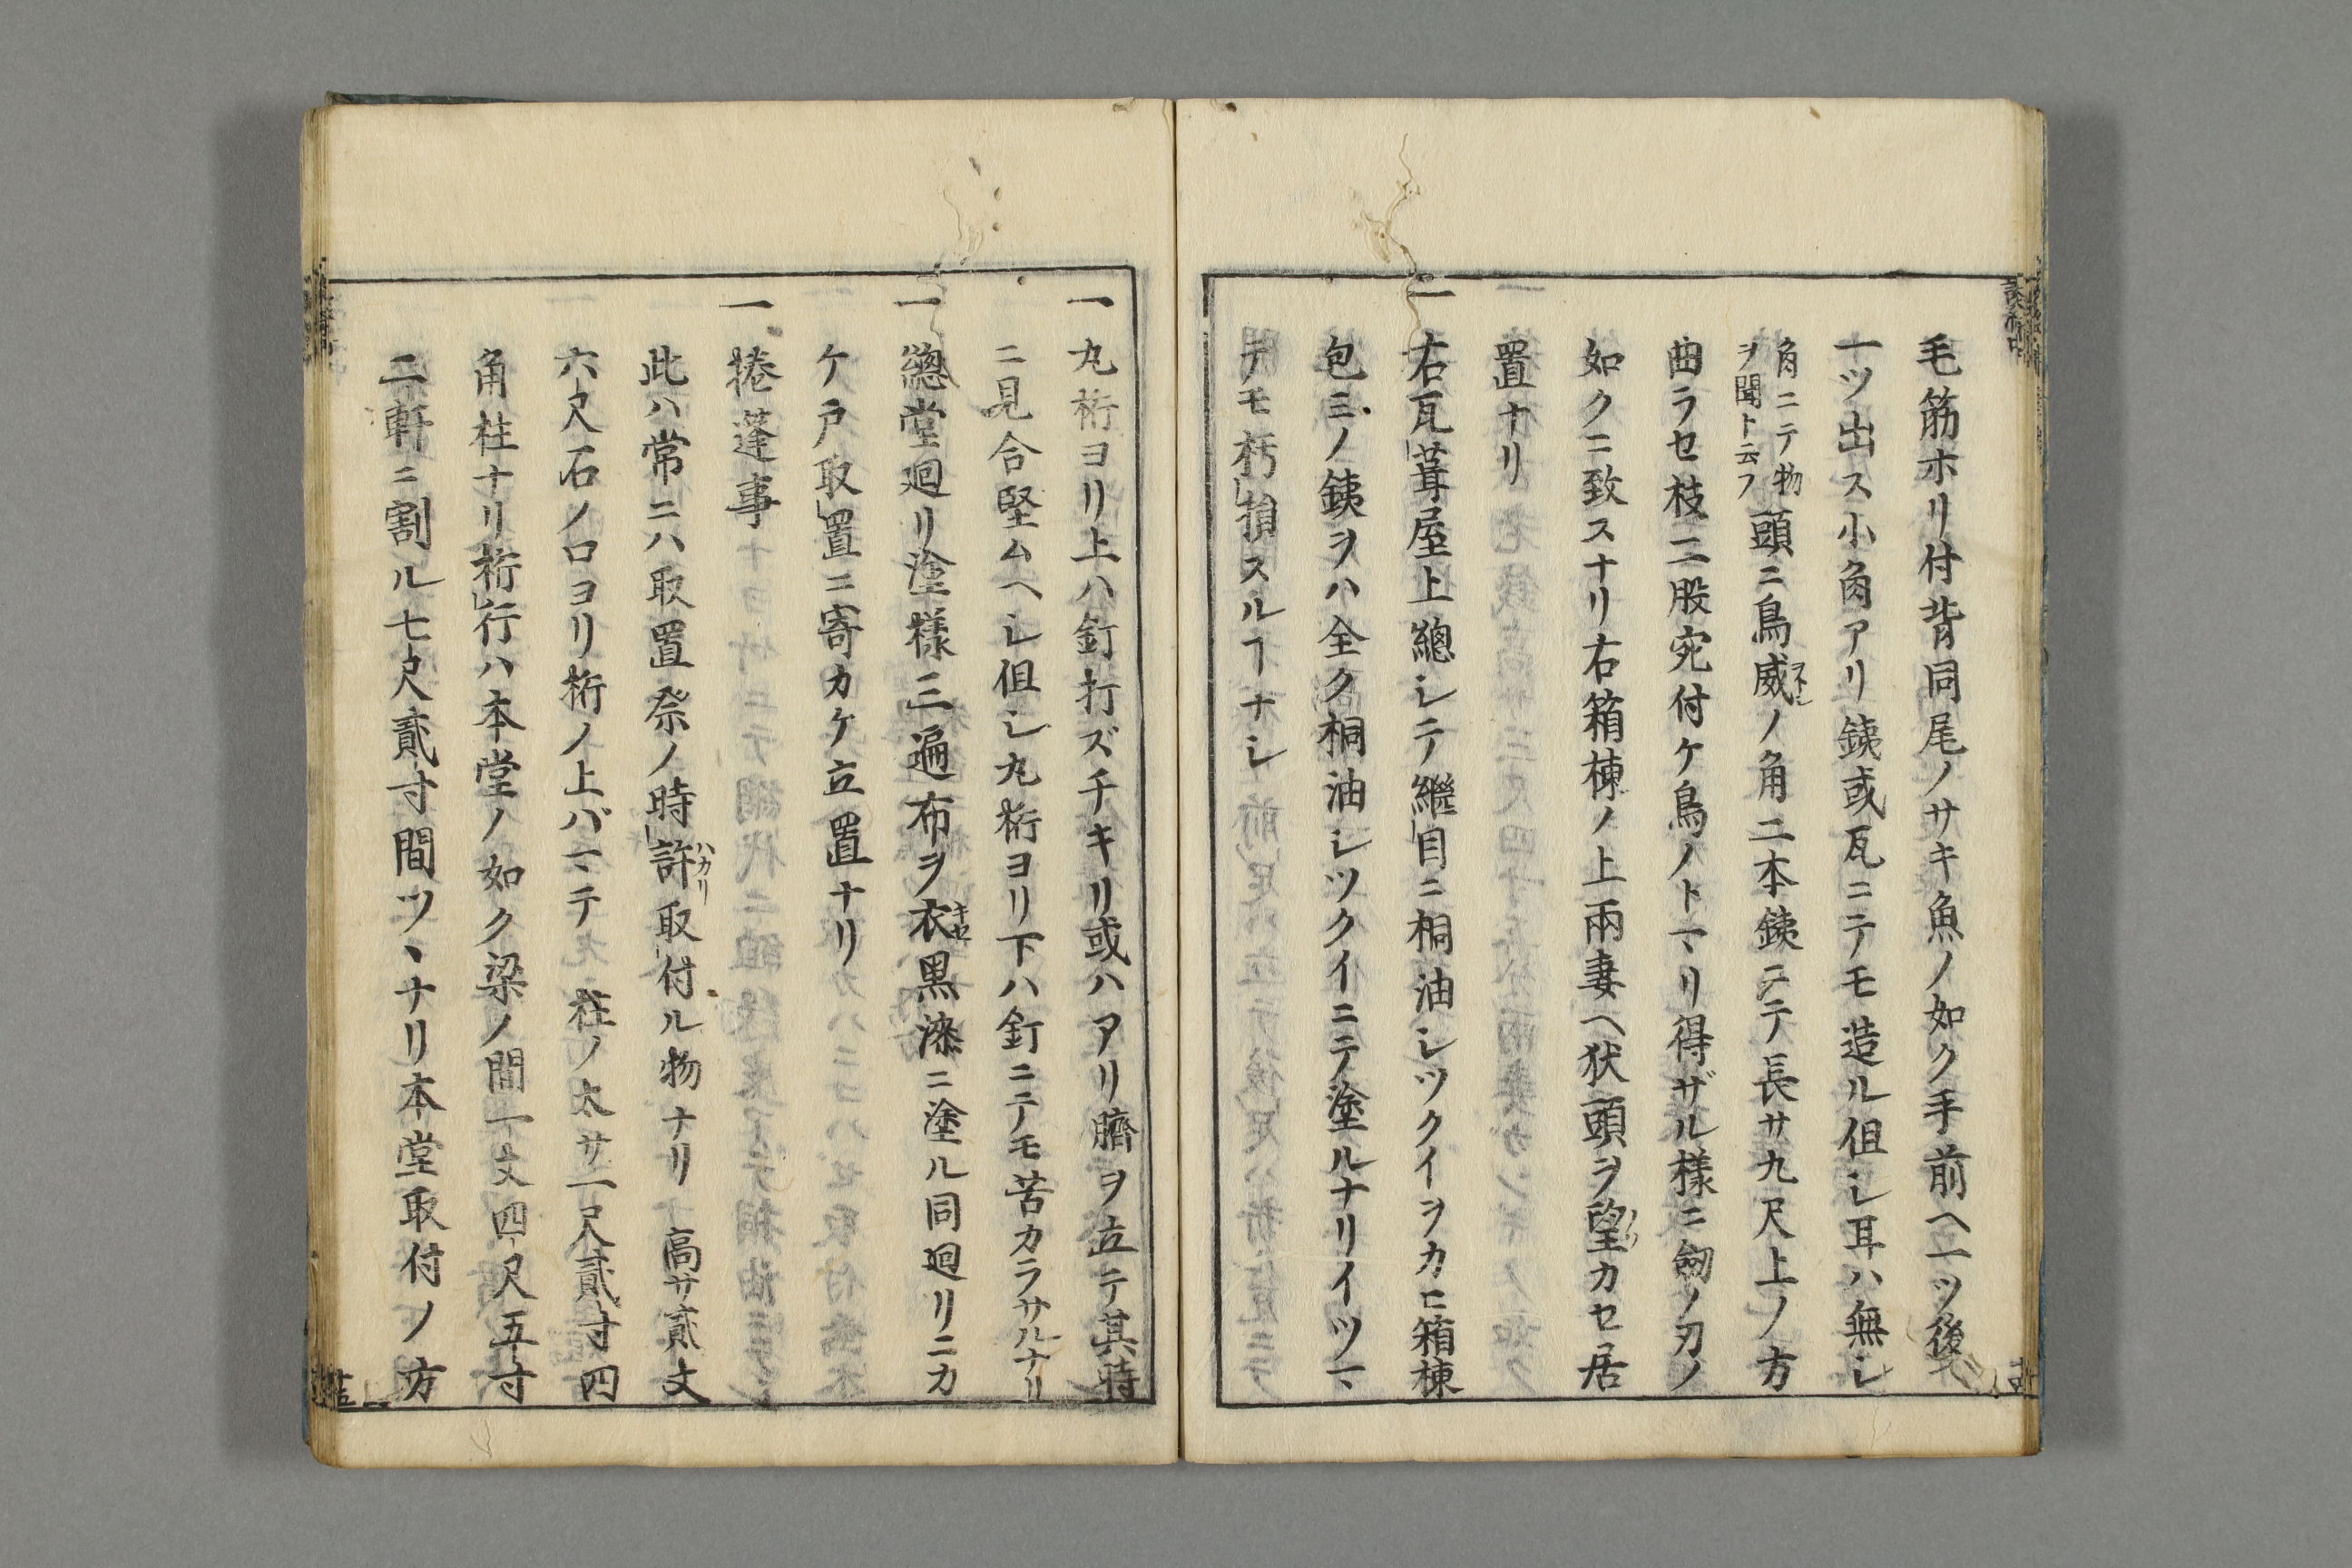 毛筋ホリ付背同尾ノサキ魚ノ如ク手前ヘ一ツ後
一ツ出ス小角アリ銕或瓦ニテモ造ル但シ耳ハ無シ
角ニテ物
ヲ聞ト云フ
頭ニ鳥威ノ角二本銕ニテ長サ九尺上ノ方
曲ラセ枝二股宛付ケ鳥ノトヽリ得ザル様ニ劔ノ刃ノ
如クニ致スナリ右箱棟ノ上兩妻ヘ狀頭ヲ望カセ居
置ナリ
一右瓦葺屋上總シテ繼目ニ桐油シツクイヲカヒ箱棟
包ミノ銕ヲハ全ク桐油シツクイニテ塗ルナリイツマヽ
テモ朽損スルヿナシ
一丸桁ヨリ上ハ釘打ズチキリ或ハアリ臍ヲ立テ其時
ニ見合堅ムヘシ但シ丸桁ヨリ下ハ釘ニテモ苦カラサルナリ
一總堂廻リ塗様三遍布ヲ衣キセ黒漆ニ塗ル同廻リニカ
ケ戸取置ニ寄カケ立置ナリ
一捲蓬事
此ハ常ニハ取置祭ノ時許ハカリ取付ル物ナリ 高サ貳丈
六尺石ノ口ヨリ桁ノ上バマヽテ 柱ノ太サ一尺貳寸四
角柱ナリ桁行ハ本堂ノ如ク梁ノ間一丈四尺五寸
二軒ニ割ル七尺貳寸間ツヽナリ本堂取付ノ方